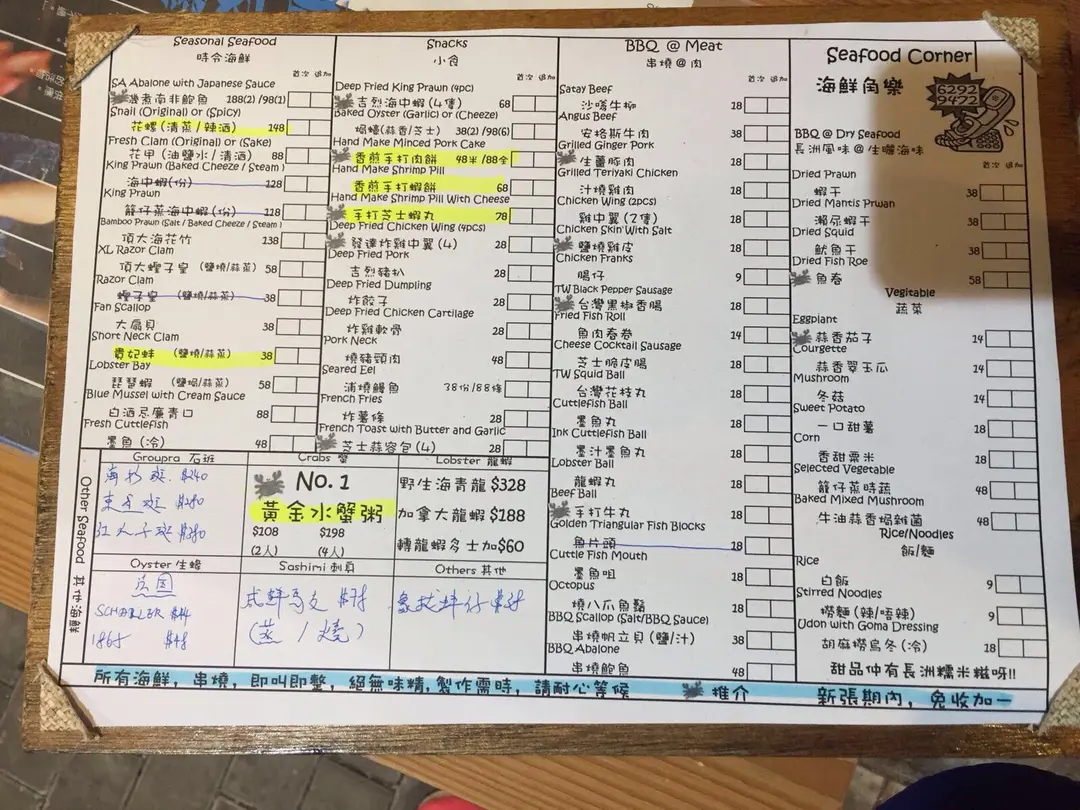 Seasonal Seafood
時令海鮮
首次 追加
SA Abalone with Japanese Sauce
煮南非鮑魚 188(2) /98(1)
Snail (Original) or (Spicy)
花螺 (清蒸 / 辣酒) 148
Fresh Clam (Original) or (Sake)
花甲 (油鹽水 / 清酒) 88
King Prawn (Baked Cheeze / Steam)
海中蝦(份) 128
King Prawn
籠仔蒸海中蝦(份) 118
Bamboo Prawn (Salt / Baked Cheeze / Steam)
頂大海花竹 238
XL Razor Clam
頂大蟶子皇 (鹽燒/蒜蓉) 58
Razor Clam
蟶子皇 (鹽燒/蒜蓉) 38
Fan Scallop
大扇貝 38
Short Neck Clam
貴妃蚌 (鹽燒/蒜蓉) 38
Lobster Bay
琵琶蝦 (鹽焗/蒜蓉) 58
Blue Mussel with Cream Sauce
白酒忌廉青口 88
Fresh Cuttlefish
墨魚 (冷) 48
Snacks
小食
首次 追加
Deep Fried King Prawn (4pc)
吉烈海中蝦 (4隻) 68
Baked Oyster (Garlic) or (Cheeze)
焗蠔(蒜香/芝士) 38(2) /98(6)
Hand Make Minced Pork Cake
香煎手打肉餅 48半 /88全
Hand Make Shrimp Pill
香煎手打蝦餅 68
Hand Make Shrimp Pill With Cheese
手打芝士蝦丸 78
Deep Fried Chicken Wing (4pcs)
發達炸雞中翼 (4) 28
Deep Fried Pork
吉烈豬扒 28
Deep Fried Dumpling
炸餃子 28
Deep Fried Chicken Cartilage
炸雞軟骨 28
Pork Neck
燒豬頸肉 48
Seared Eel
蒲燒鰻魚 38份/88條
French Fries
炸薯條 28
French Toast with Butter and Garlic
芝士蒜容包 (4) 28
BBQ @ Meat
串燒@肉
首次 追加
Satay Beef
沙嗲牛柳 18
Angus Beef
安格斯牛肉 38
Grilled Ginger Pork
生薑豚肉 18
Grilled Teriyaki Chicken
汁燒雞肉 18
Chicken Wing (2pcs)
雞中翼 (2隻) 18
Chicken Skin With Salt
鹽燒雞皮 18
Chicken Franks
腸仔 9
TW Black Pepper Sausage
台灣黑椒香腸 18
Fried Fish Roll
魚肉春卷 14
Cheese Cocktail Sausage
芝士脆皮腸 18
TW Squid Ball
台灣花枝丸 18
Cuttlefish Ball
墨魚丸 18
Ink Cuttlefish Ball
墨汁墨魚丸 18
Lobster Ball
龍蝦丸 18
Beef Ball
手打牛丸 18
Golden Triangular Fish Blocks
魚片頭 18
Cuttle Fish Mouth
墨魚咀 18
Octopus
燒八爪魚鬚 18
BBQ Scallop (Salt/BBQ Sauce)
串燒帆立貝 (鹽/汁) 38
BBQ Abalone
串燒鮑魚 48
Seafood Corner
海鮮角樂
6292
9472
BBQ @ Dry Seafood
長洲風味@生曬海味
首次 追加
Dried Prawn
蝦干 38
Dried Mantis Prwan
瀨尿蝦干 38
Dried Squid
魷魚干 38
Dried Fish Roe
魚春 58
Vegitable
蔬菜
Eggplant
蒜香茄子 14
Courgette
蒜香翠玉瓜 14
Mushroom
冬菇 14
Sweet Potato
一口甜薯 18
Corn
香甜粟米 18
Selected Vegetable
籠仔蒸時蔬 48
Baked Mixed Mushroom
牛油蒜香焗雜菌 48
Rice/Noodles
飯/麵
Rice
白飯 9
Stirred Noodles
撈麵 (辣/唔辣) 9
Udon with Goma Dressing
胡麻撈烏冬 (冷) 18
甜品仲有長洲糯米糍呀!!
Other Seafood 其他海鮮
Groupra 石班
$240
$280
$280
Crabs 蟹
No. 1
黃金水蟹粥
$108 $198
(2人) (4人)
Lobster 龍蝦
野生海青龍 $328
加拿大龍蝦 $188
轉龍蝦多士加$60
Oyster 生蠔
法国
1865 $48
Sashimi 刺身
$78
(蒸 / 燒)
Others 其他
所有海鮮, 串燒, 即叫即整, 絕無味精, 製作需時, 請耐心等候 推介 新張期內, 免收加一